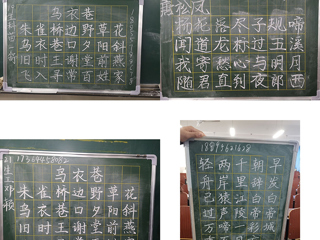 乌衣巷
朱雀桥边野草花
乌衣巷口夕阳斜
旧时王谢堂前燕
飞入寻常百姓家
杨花落尽子规啼
闻道龙标过五溪
我寄愁心与明月
随君直到夜郎西
乌衣巷
朱雀桥边野草花
乌衣巷口夕阳斜
旧时王谢堂前燕
早发白帝城
朝辞白帝彩
千里江陵一
两岸猿声啼
轻舟已过万